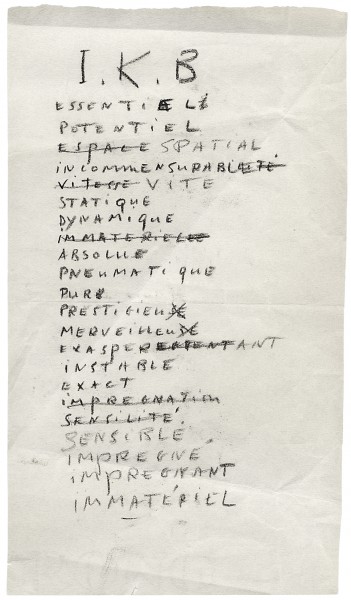 I.K.B
ESSENTIEL
POTENTIEL
ESPACE SPATIAL
INCOMMENSURABLE
VITESSE VITE
STATIQUE
DYNAMIQUE
IMMATERIELLE
ABSOLUE
PNEUMATIQUE
PUR
PRESTIGIEUX
MERVEILLEUX
EXASPERANT
INSTABLE
EXACT
IMPREGNATION
SENSILITÉ
SENSIBLE
IMPREGNÉ
IMPREGNANT
IMMATÉRIEL